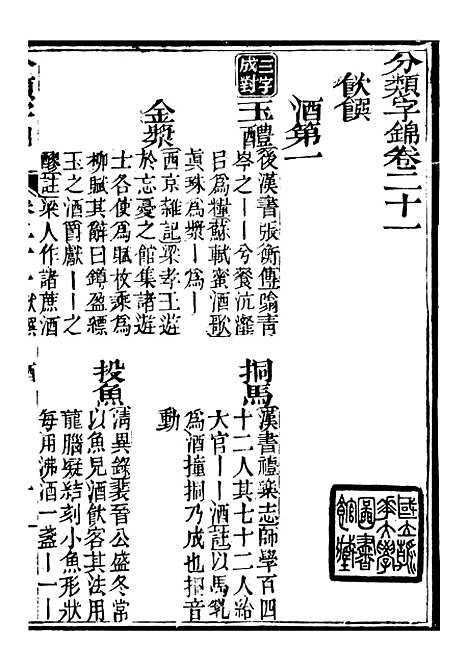 分類字錦卷二十一
飲饌
酒第一
二字
成對
玉醴
後漢書張衡傳噏青
岑之丨丨兮餐沆瀣
以爲糧蘇軾蜜酒歌
眞珠爲漿丨爲丨
挏馬
漢書禮樂志師學百四
十二人其七十二人給
大官丨丨酒註以馬乳
爲酒撞挏乃成也挏音
動
金漿
西京雜記梁孝王遊
於忘憂之館集諸遊
士各使爲賦枚乘爲
柳賦其辭曰罇盈縹
玉之酒爵獻丨丨之
醪註梁人作諸蔗酒
投魚
清異錄裴晉公盛冬常
以魚兒酒飲客其法用
龍腦凝結刻小魚形狀
每用沸酒一盞丨一丨
國立龍
江大學
圖書
館藏